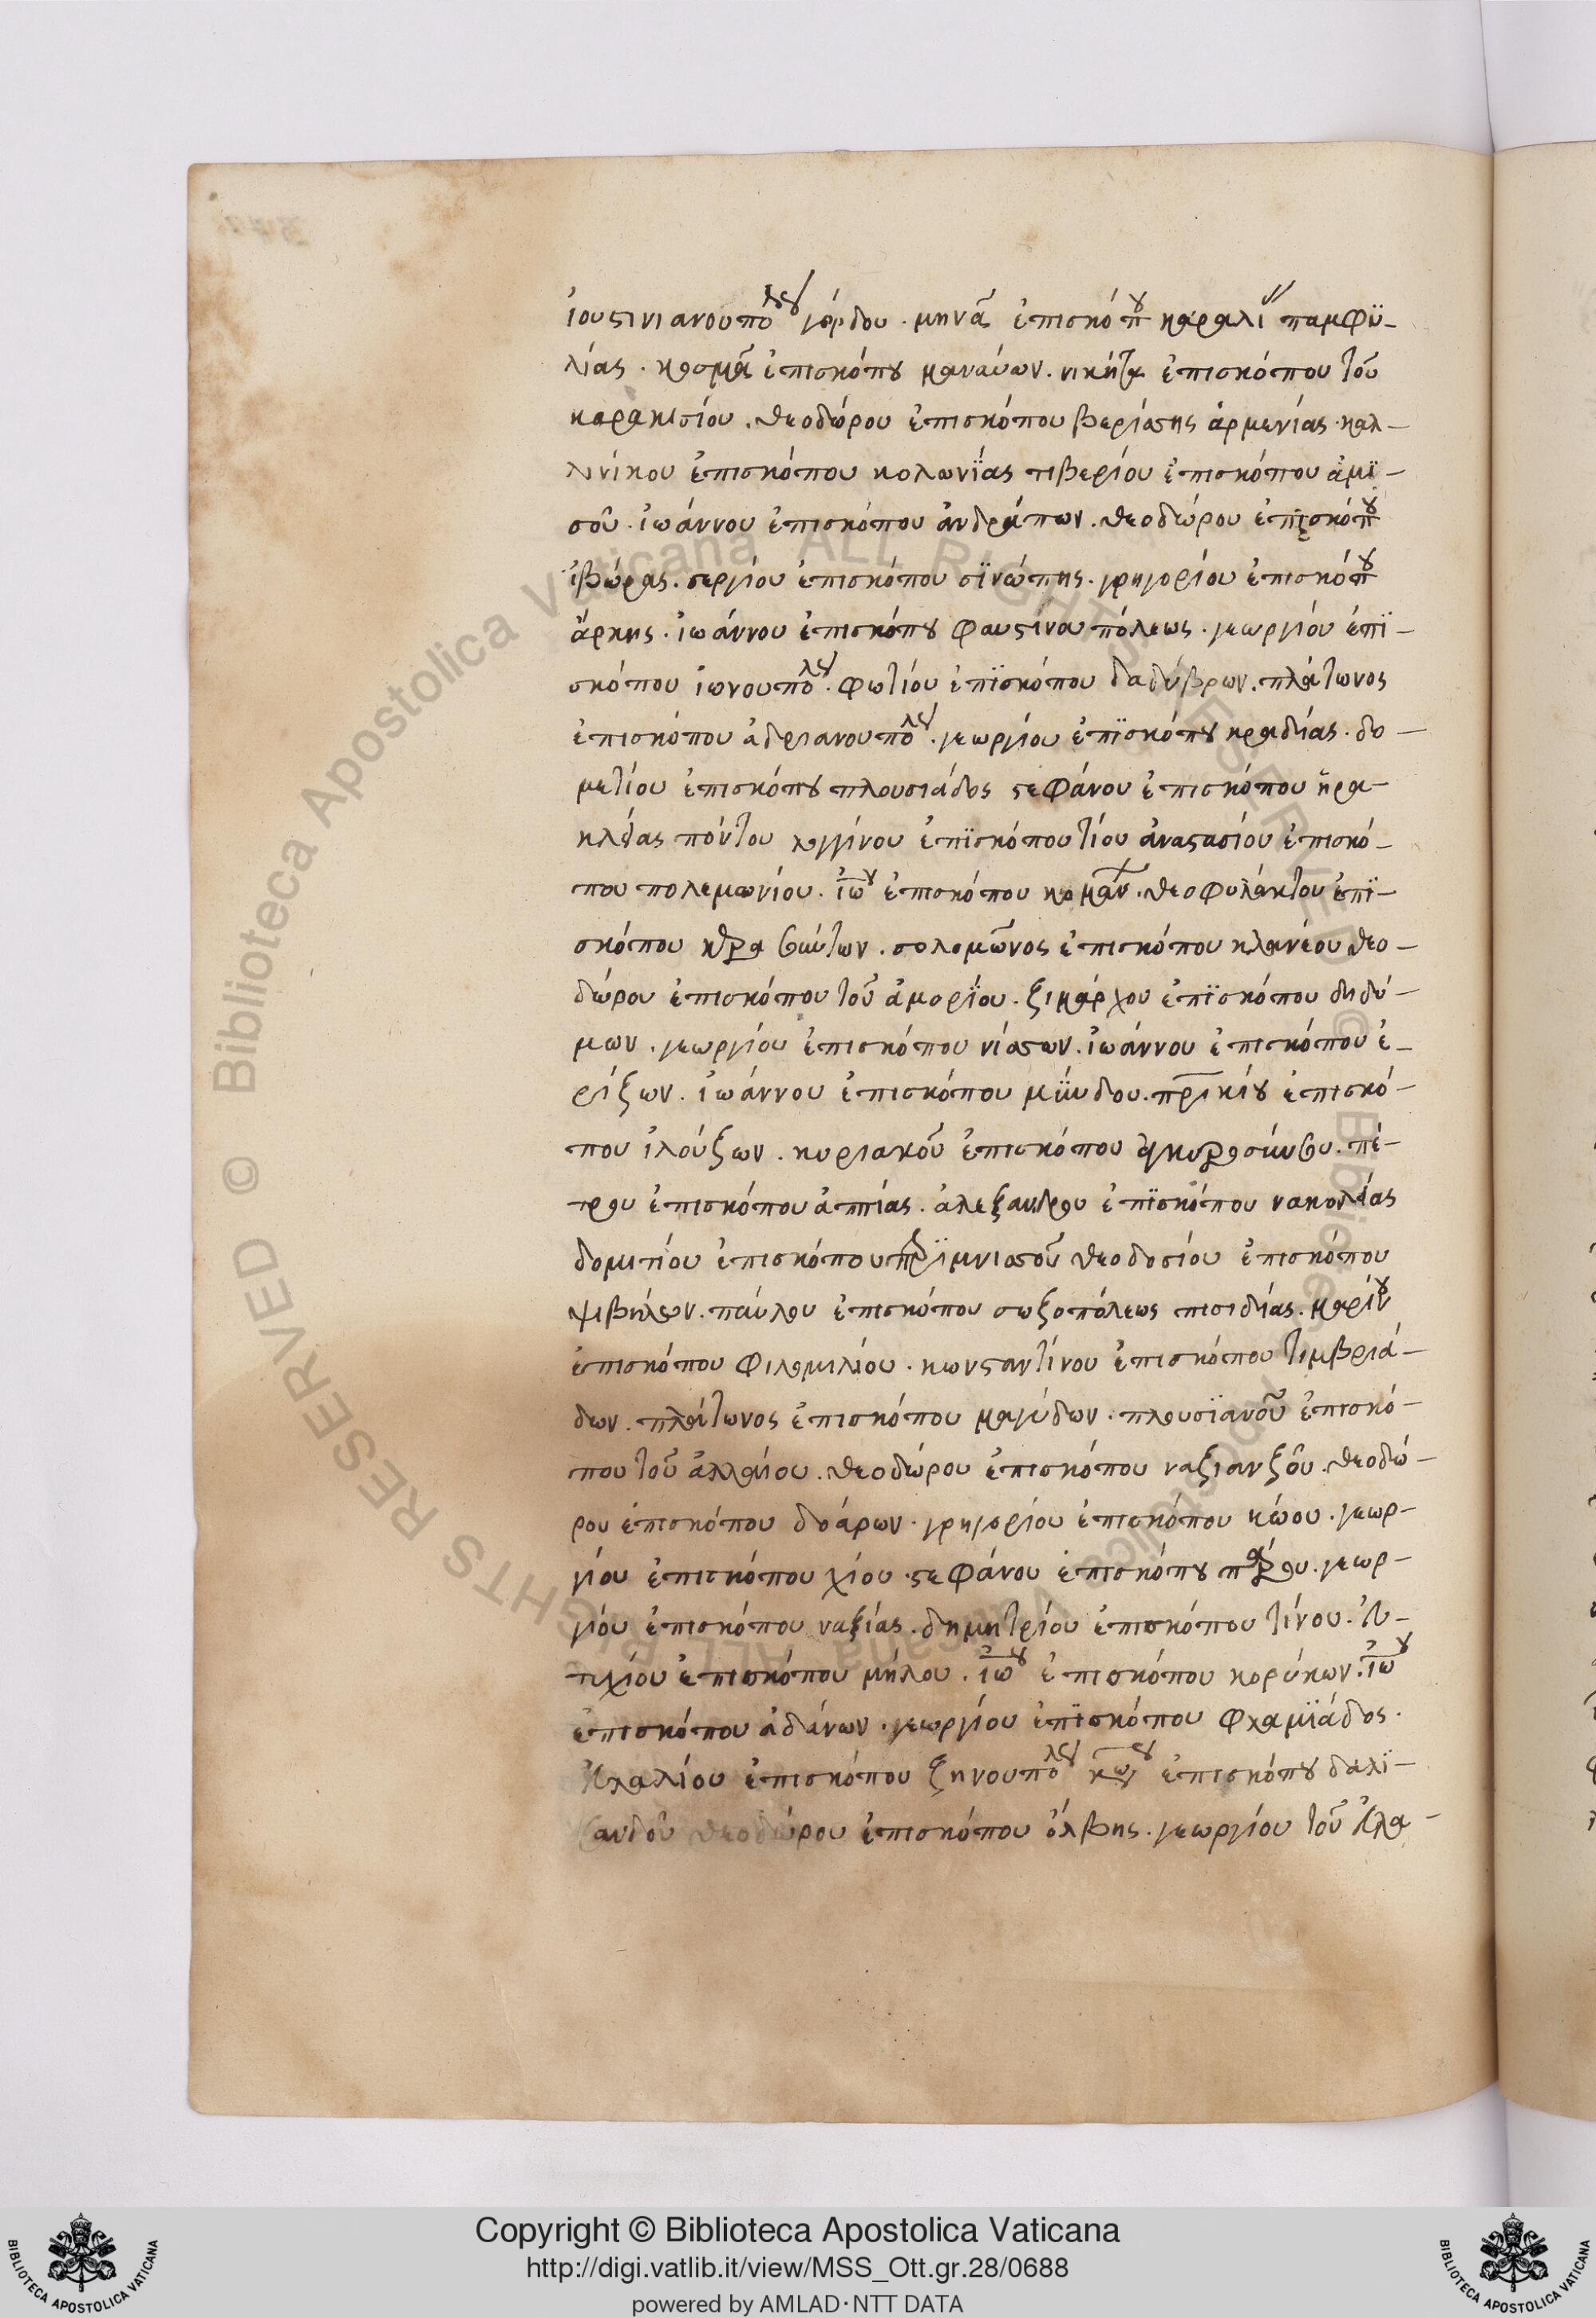 ἰουστινιανουπόλεως γόρδου. μηνᾶ ἐπισκόπου καραλί παμφϋ-
λίας. κοσμᾶ ἐπισκόπου μαναύων. νικήτα ἐπισκόπου τοῦ
κορακισίου. θεοδώρου ἐπισκόπου βερίασης ἀρμενίας. καλ-
λινίκου ἐπισκόπου κολωνΐας τιβερίου ἐπισκόπου ἀμϊ-
σοῦ. ἰωάννου ἐπισκόπου ἀνδράπων. θεοδώρου ἐπισκόπου
ἰβώρας. σεργίου ἐπισκόπου σϊνώπης. γρηγορίου ἐπισκόπου
ἄρκης. ἰωάννου ἐπισκόπου φαυστίνου πόλεως. γεωργίου ἐπϊ-
σκόπου ἰωνουπόλεως. φωτίου ἐπϊσκόπου δαδύβρων. πλάτωνος
ἐπισκόπου ἀδριανουπόλεως. γεωργίου ἐπϊσκόπου κραδίας. δο-
μετίου ἐπισκόπου πλουσιάδος στεφάνου ἐπισκόπου ἡρα-
κλείας πόντου λογγίνου ἐπϊσκόπου τίου ἀναστασίου ἐπισκό-
που πολεμωνίου. ἰω ἐπισκόπου κομάν. θεοφυλάκτου ἐπϊ-
σκόπου σολομῶνος ἐπισκόπου κλανέου θεο-
δώρου ἐπισκόπου τοῦ ἀμορΐου. ζιμάρχου ἐπϊσκόπου διδύ-
μων. γεωργίου ἐπισκόπου νίασων. ἰωάννου ἐπισκόπου ἐ-
ρίζων. ἰωάννου ἐπισκόπου μύνδου. πατρικίου ἐπισκό-
που ἰλούζων. κυριακοῦ ἐπισκόπου πέ-
τρου ἐπισκόπου ἀππίας. ἀλεξανδρου ἐπϊσκόπου νακολείας
δομιτίου ἐπισκόπου πρϊμνιασοῦ θεοδοσίου ἐπισκόπου
ψιβήλων. παύλου ἐπισκόπου σωζοπόλεως πισιδίας. μαρίνου
ἐπισκόπου φιλομιλίου. κωνσταντίνου ἐπισκόπου τιμβριά-
δων. πλάτωνος ἐπισκόπου μαγύδων. πλουσϊανοῦ ἐπισκό-
που τοῦ ἀλλαίου. θεοδώρου ἐπισκόπου ναζιανζοῦ. θεοδώ-
ρου ἐπισκόπου δοάρων. γρηγορίου ἐπισκόπου κώου. γεωρ-
γίου ἐπισκόπου χίου. στεφάνου ἐπισκόπου πάρου. γεωρ-
γίου ἐπισκόπου ναξίας. δημητρίου ἐπισκόπου τίνου. εὐ-
τυχίου ἐπισκόπου μήλου. ἰω ἐπισκόπου κορύκων. ἰω
ἐπισκόπου ἀδάνων. γεωργίου ἐπϊσκόπου φλαμϊάδος.
εὐλαλίου ἐπισκόπου ζηνουπόλεως κων ἐπισκόπου δαλϊ-
σανδοῦ θεοδώρου ἐπισκόπου ὄλβης. γεωργίου τοῦ εὐλα-
Copyright © Biblioteca Apostolica Vaticana
http://digi.vatlib.it/view/MSS_Ott.gr.28/0688
powered by AMLAD·NTT DATA
BIBLIOTECA APOSTOLICA VATICANA
BIBLIOTECA APOSTOLICA VATICANA
© Biblioteca Apostolica Vaticana ALL RIGHTS RESERVED
© Biblioteca Apostolica Vaticana ALL RIGHTS RESERVED